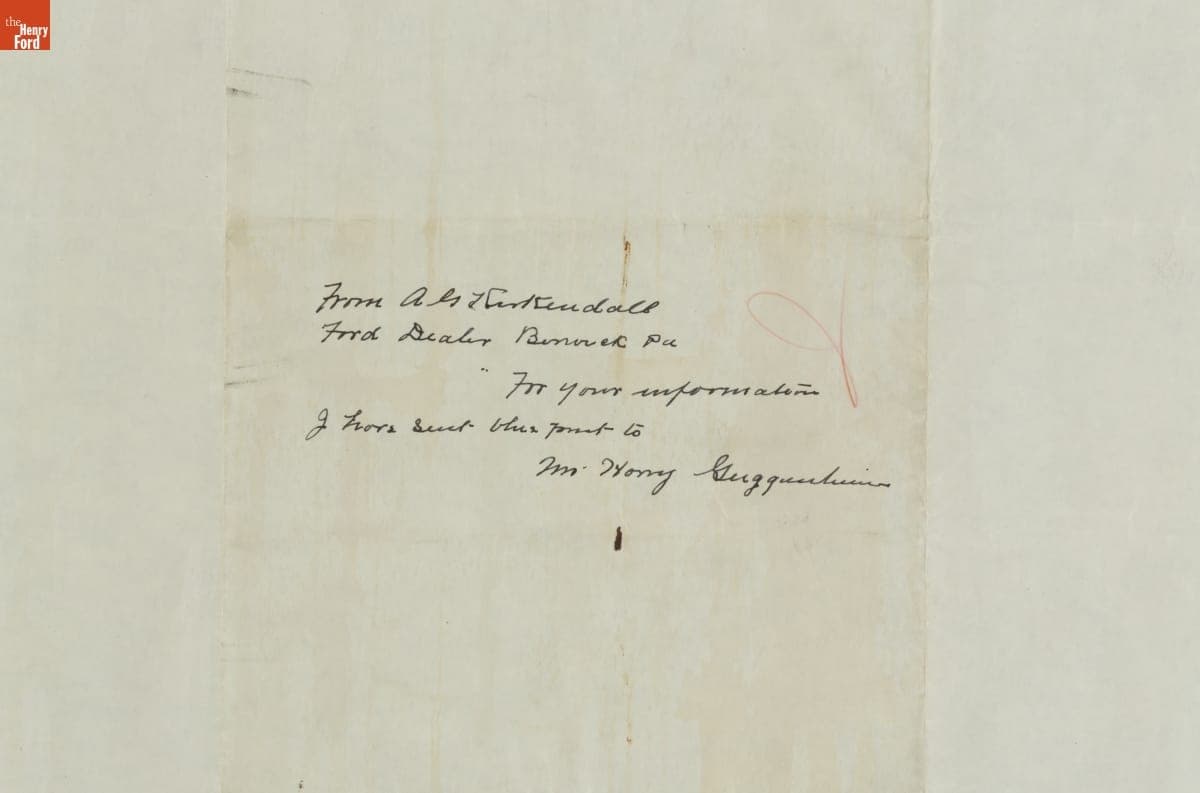 the
Henry
Ford
From A G Kirkendall
Ford Dealer Berwick Pa
" For your information
I have sent blue print to
Mr. Harry Guggenheim